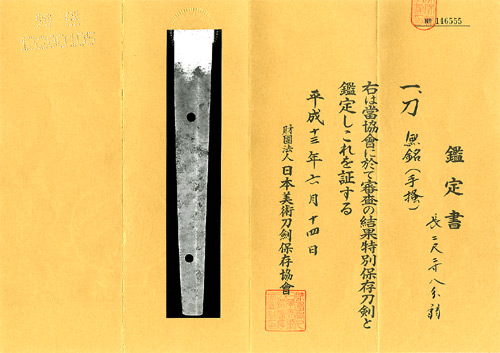 № 146555
鑑定書
一、刀 無銘(手掻)
長二尺二寸八分弱
右は當協會に於て審査の結果特別保存刀剣と
鑑定しこれを証する
平成十三年六月十四日
財團法人 日本美術刀剣保存協會